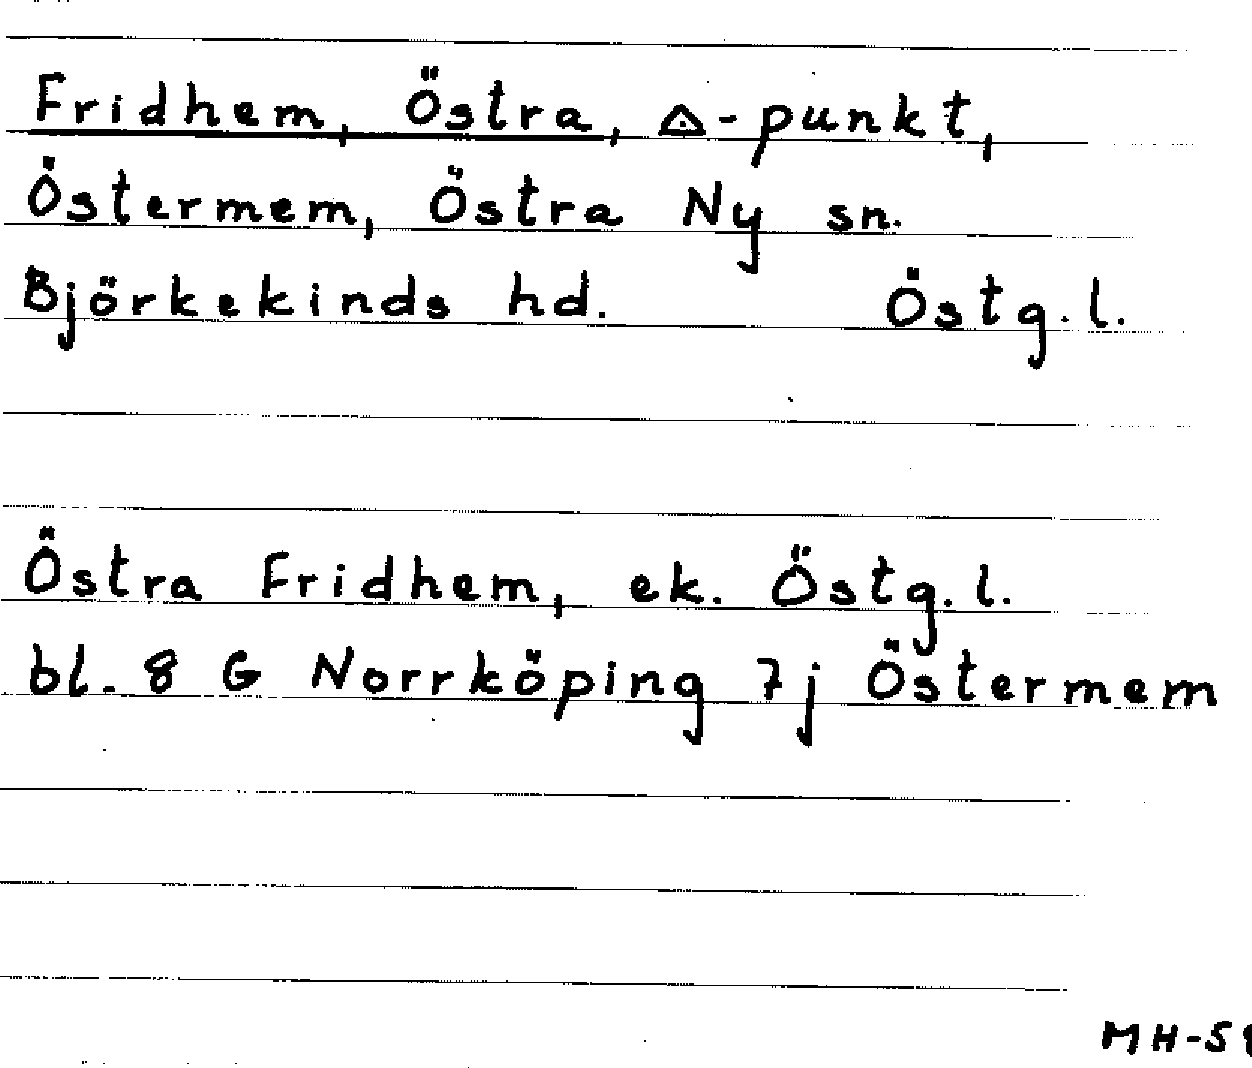 Fridhem, Östra, △-punkt,
Östermem, Östra Ny sn.
Björkekinds hd. Östg.l.
Östra Fridhem, ek. Östg.l.
bl. 8 G Norrköping 7j Östermem